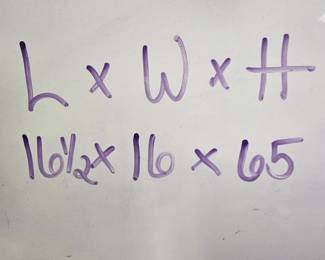 L x W x H
16½ x 16 x 65